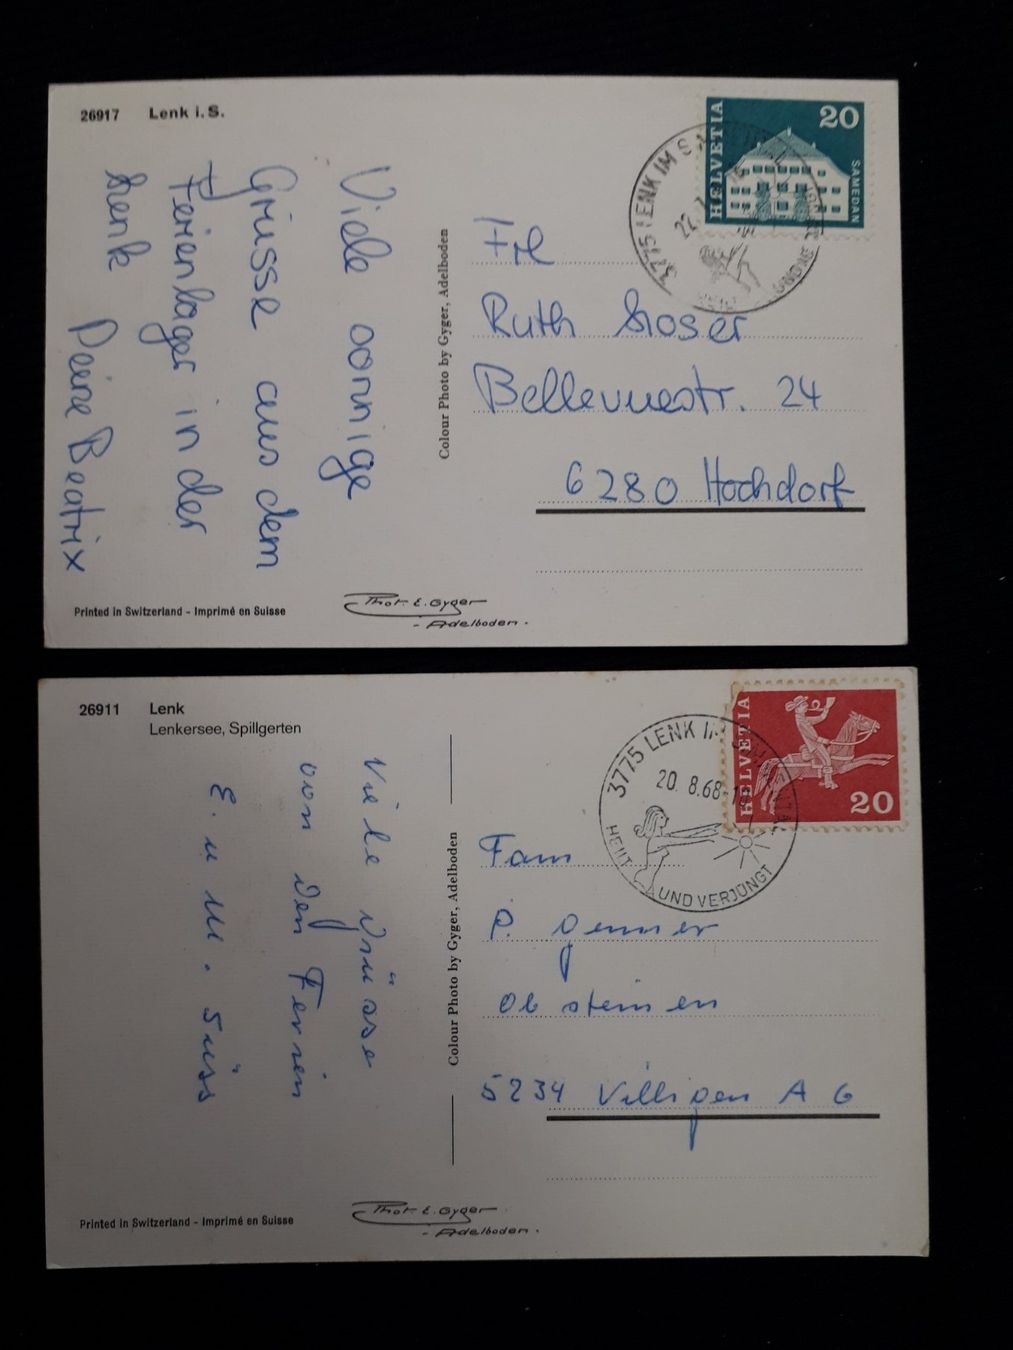 26917 Lenk i. S.
Viele sonnige
Grüsse aus dem
Ferienlager in der
Lenk
Deine Beatrix
Colour Photo by Gyger, Adelboden
HELVETIA
20
SAMEDAN
3775 LENK IM S
22.
Frl
Ruth Moser
Bellevuestr. 24
6280 Hochdorf
Printed in Switzerland - Imprimé en Suisse
Phot. E. Gyger
- Adelboden -
26911 Lenk
Lenkersee, Spillgerten
Viele Grüsse
von den Ferien
E. u M. Süss
Colour Photo by Gyger, Adelboden
HELVETIA
20
3775 LENK IM SIMMENTAL
20. 8.68-1
HEILT UND VERJÜNGT
Fam
P.
Obsteinen
5234 Villigen AG
Printed in Switzerland - Imprimé en Suisse
Phot. E. Gyger
- Adelboden -